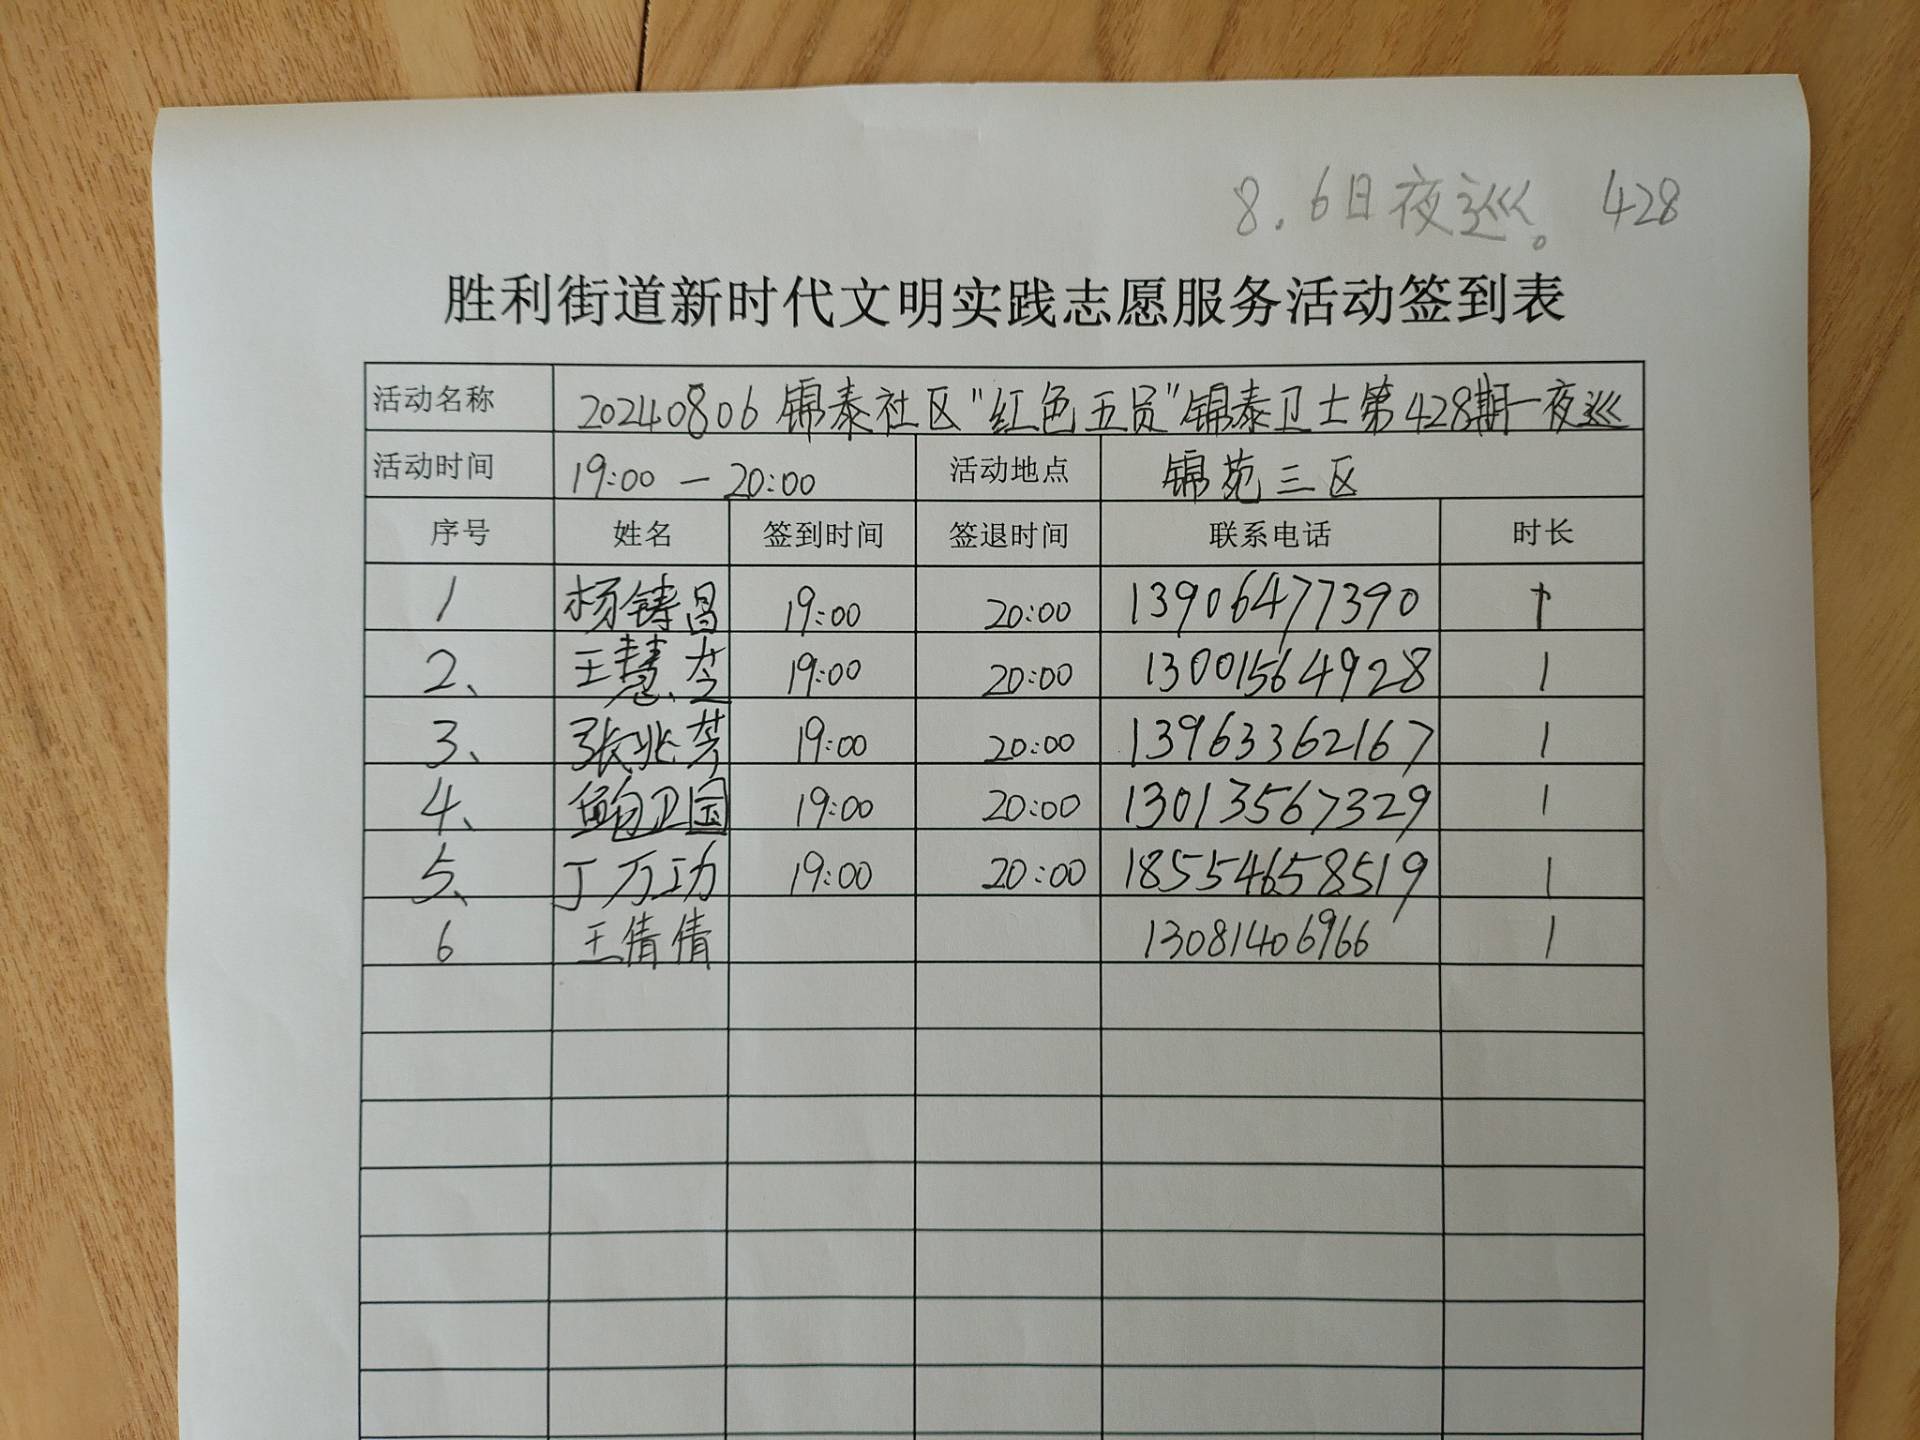 8.6日夜巡。 428
胜利街道新时代文明实践志愿服务活动签到表
活动名称 20240806锦泰社区"红色五员"锦泰卫士第428期一夜巡
活动时间 19:00 — 20:00 活动地点 锦苑三区
序号 姓名 签到时间 签退时间 联系电话 时长
1 杨铸昌 19:00 20:00 13906477390 1
2、 王慧芝 19:00 20:00 13001564928 1
3、 张兆芹 19:00 20:00 13963362167 1
4、 鲍卫国 19:00 20:00 13013567329 1
5、 丁万功 19:00 20:00 18554658519 1
6 王倩倩 13081406966 1